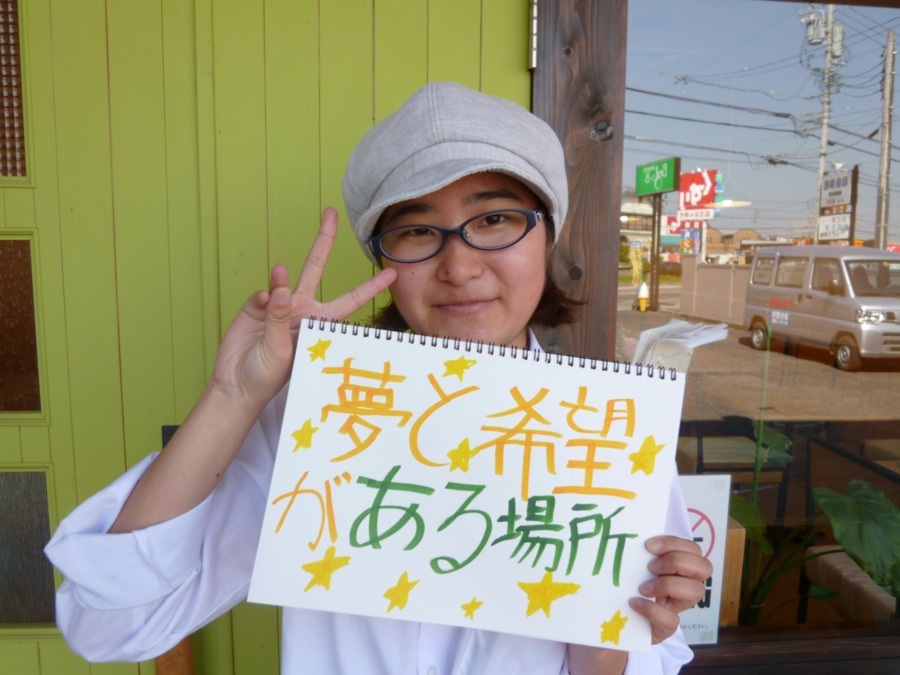 夢と希望
がある場所